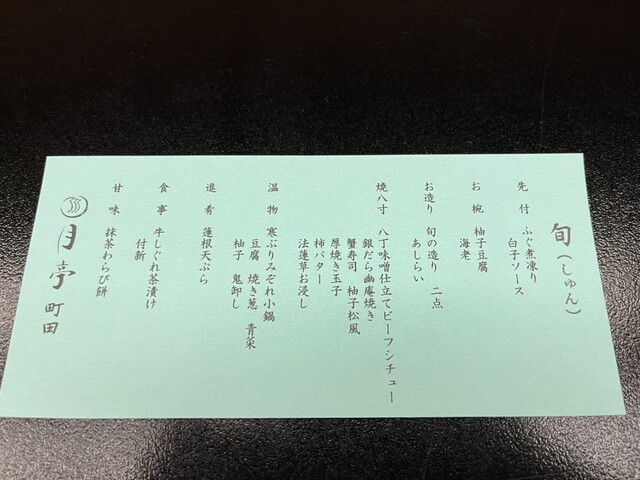 旬(しゅん)
先付 ふぐ煮凍り
白子ソース
お椀 柚子豆腐
海老
お造り 旬の造り 二点
あしらい
焼八寸 八丁味噌仕立てビーフシチュー
銀だら幽庵焼き
蟹寿司 柚子松風
厚焼き玉子
柿バター
法蓮草お浸し
温物 寒ぶりみぞれ小鍋
豆腐 焼き葱 青菜
柚子 鬼卸し
進肴 蓮根天ぷら
食事 牛しぐれ茶漬け
付新
甘味 抹茶わらび餅
月亭 町田